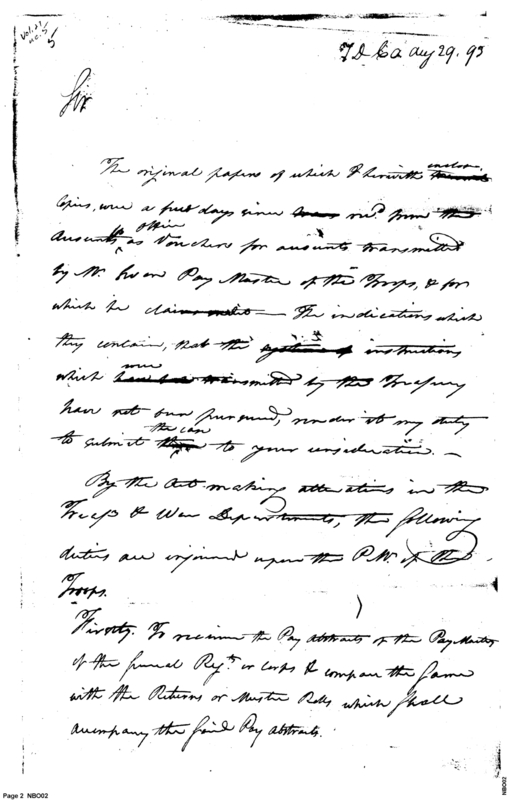 Vol. 21
No. 5
5
T D C O Aug 29. 95
Sir
The original papers of which I herewith enclose
Copies, were a few days since rec'd. from the
Accounts office as Vouchers for accounts transmitted
by Mr. Swan Pay Master of the Troops, & for
which he claims credit — The indications which
they contain, that the instructions
which were transmitted by the Treasury
have not been pursued, render it my duty
to submit the case to your consideration. —
By the Act making alterations in the
Treasy & War Departments, the following
duties are enjoined upon the P.M. of the
Troops.
Firstly. To receive the Pay abstracts of the Pay Masters
of the several Regts. or corps & compare the same
with the Returns or Muster Rolls which shall
accompany the said Pay abstracts.
Page 2 NBO02
NBO02